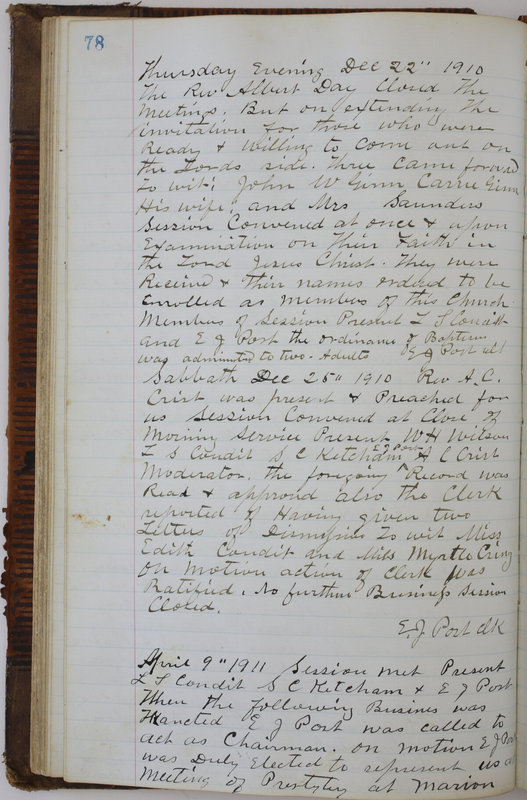 78
Thursday Evening Dec 22" 1910
The Rev Albert Day Closed The
Meetings. But on extending The
invitation for those who were
Ready & Willing to Come out on
the Lords side. Three came forward
to wit; John W Ginn Carrie Ginn
His wife, and Mrs Saunders
Session Convened at once & upon
Examination on Their Faith in
the Lord Jesus Christ. They were
Received & their names ordered to be
Enrolled as members of this Church
Members of Session Present L S Condit
and E J Post the ordinance of Baptism
was administed to two Adults E J Post clk
Sabbath Dec 25" 1910 Rev A.C.
Crist was present & Preached for
us Session Convened at Close of
Morning Service Present W H Wilson
L S Condit S C Ketcham E J Post A C Crist
Moderator. The foregoing Record was
Read & approved also the Clerk
reported of Having given two
Letters of Dismission to wit Miss
Edith Condit and Miss Myrtle
On Motion action of Clerk was
Ratified. No further Business Session
Closed.
E. J Post clk
April 9" 1911 Session met Present
L S Condit S C Ketcham & E J Post
When the following Busines was
E J Post was called to
act as Chairman. on motion E J Post
was Duly Elected to represent us at
Meeting of Presbytery at Marion